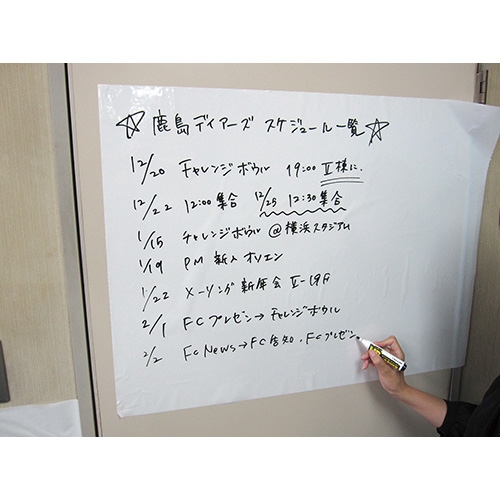 ☆鹿島ディアーズ スケジュール一覧☆
12/20 チャレンジボウル 19:00 II様に.
12/22 12:00集合 12/25 12:30集合
1/15 チャレンジボウル @横浜スタジアム
1/19 PM 新人オリエン
1/22 メーリング新年会
2/1 FCプレゼン→チャレンジボウル
2/2 FC News→FC告知.FCプレゼン